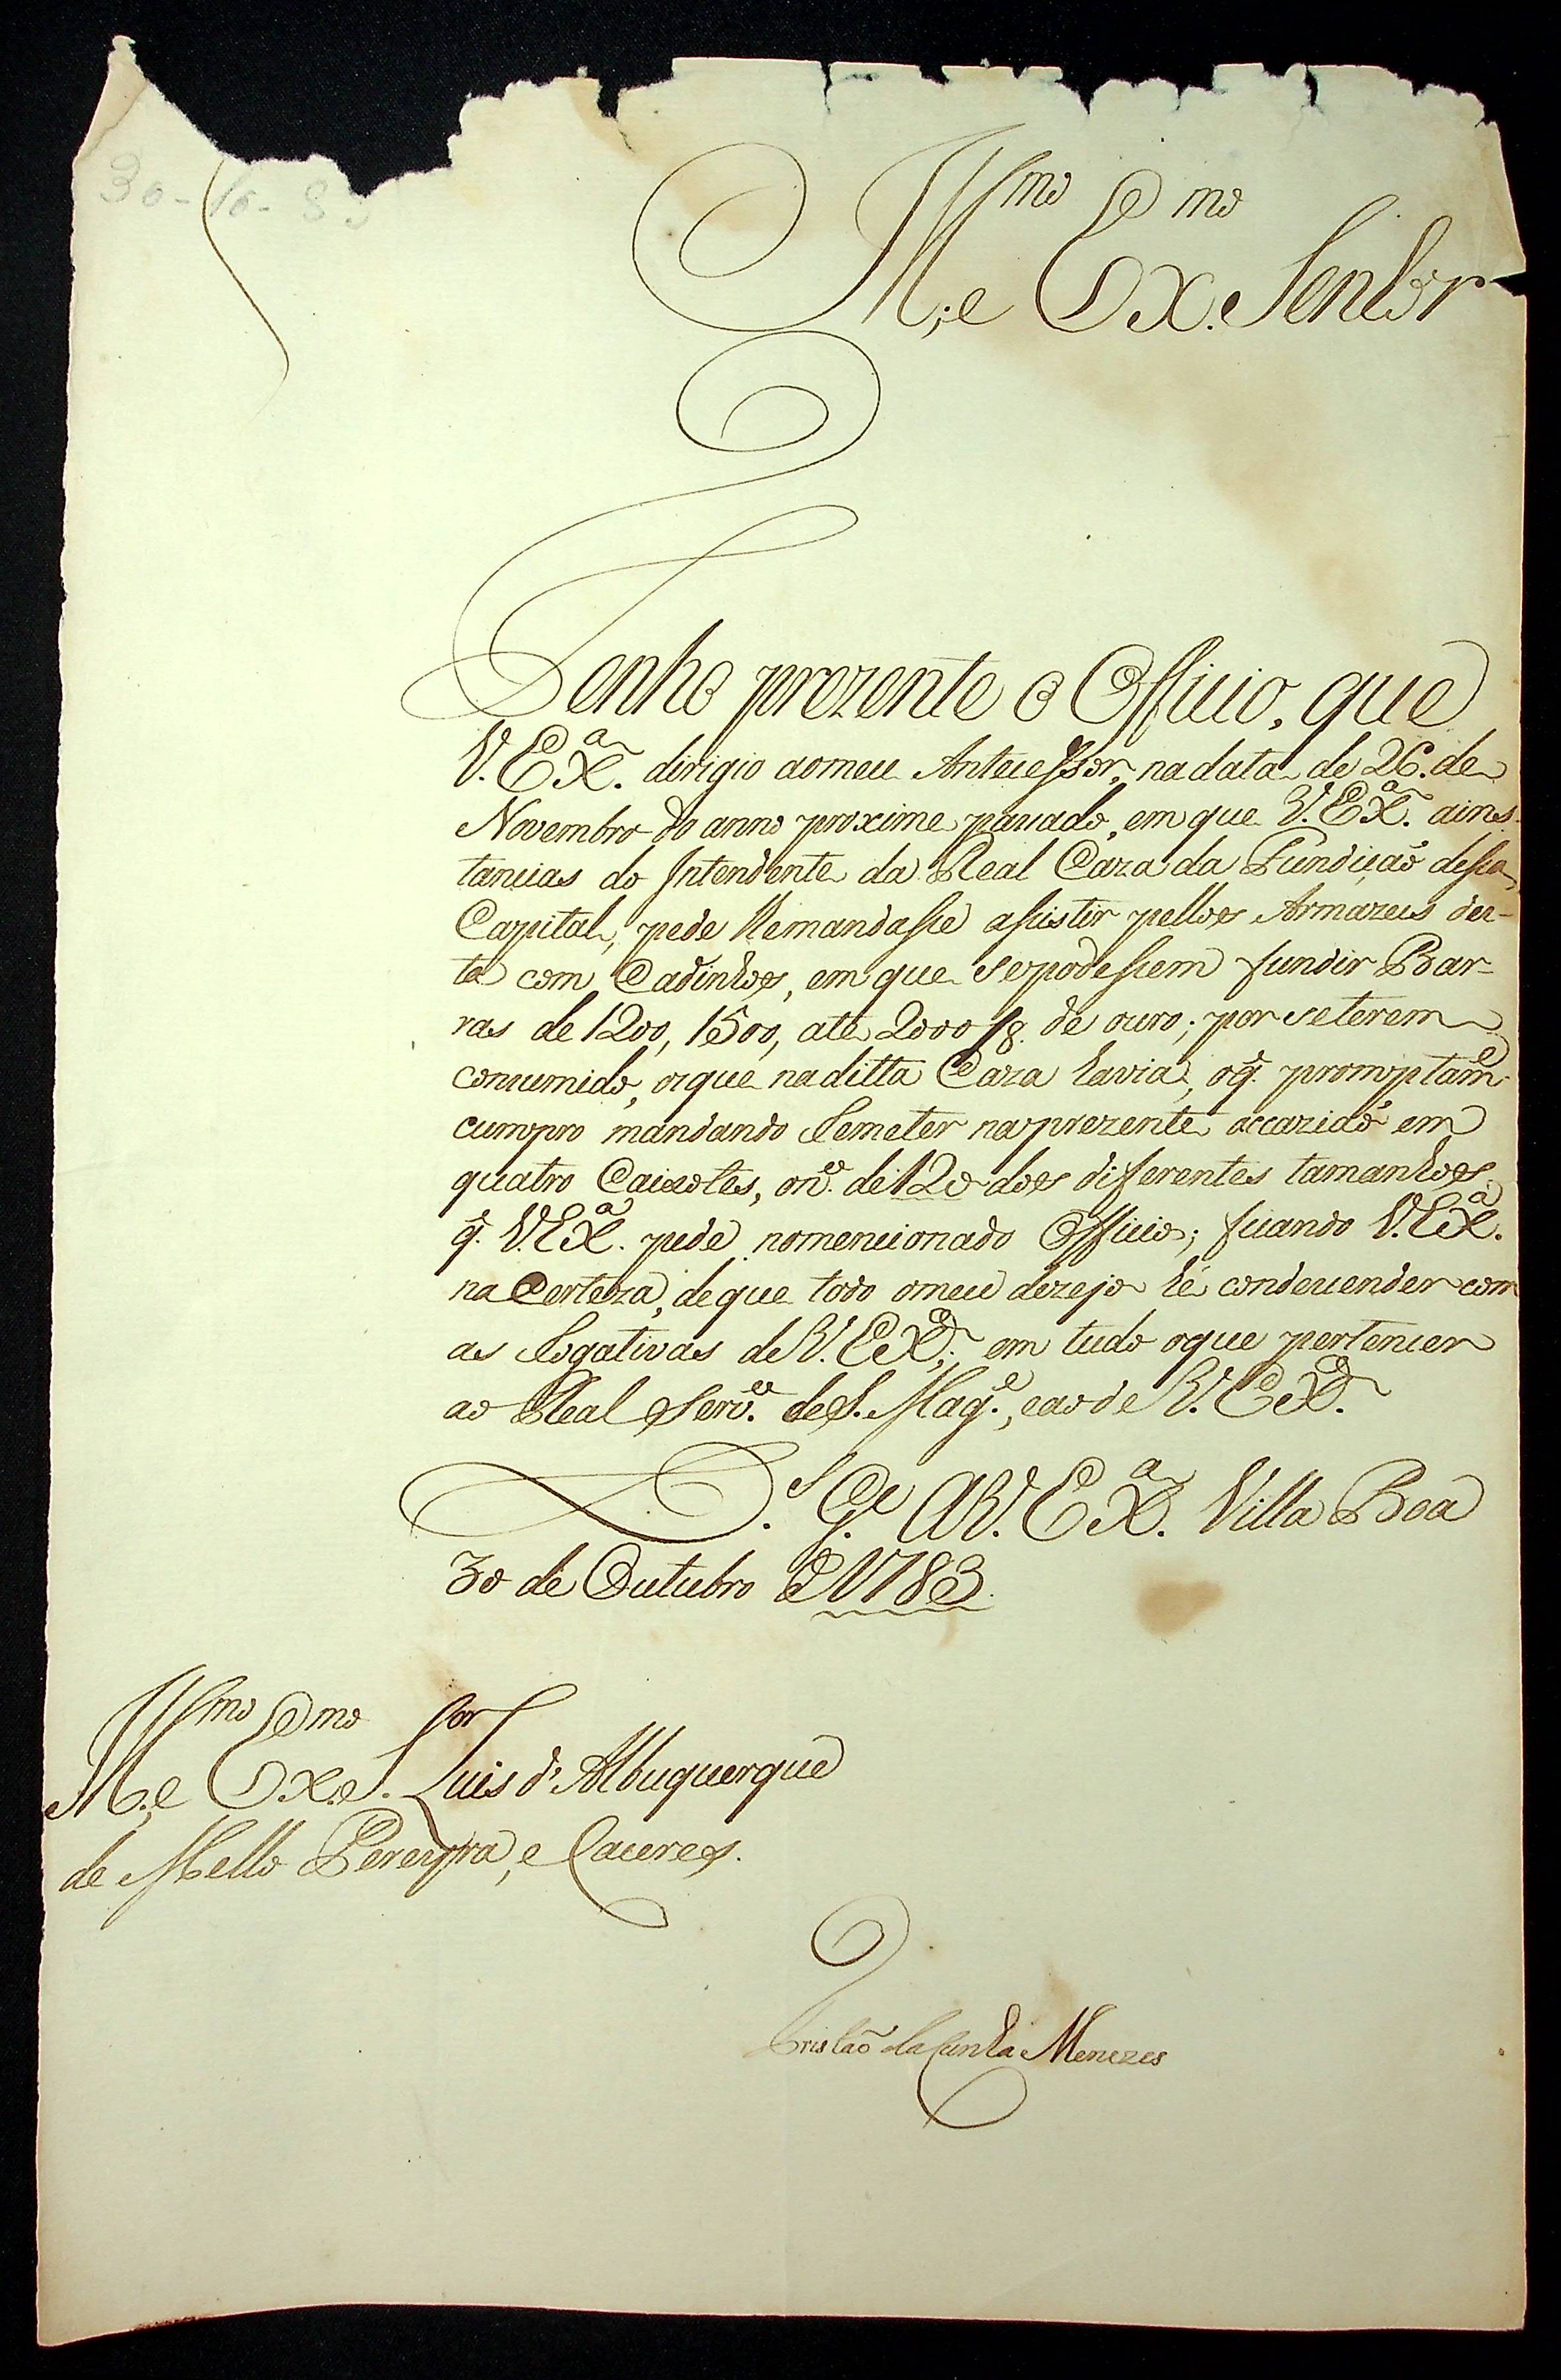 30-10-83
Ill.mo e Ex.mo Senhor
Tenho prezente o Officio, que
V. Ex.a dirigio aomeu Antecessor, nadata de 26. de
Novembro do anno proximo passado, em que V. Ex.a ains-
tancias do Intendente da Real Caza da Fundição dessa
Capital, pede Remandasse assistir pellos Armazeis des-
ta com Cadinhos, em que sepodessem fundir Bar-
ras de 1200, 1500, até 2000/8.as de ouro; por seterem
consumido, osque naditta Caza havia; oq. promptam.e
cumpro mandando Remeter naprezente occazião em
quatro Caixotes, on.o de 120 dos diferentes tamanhos,
q. V. Ex.a pede nomencionado Officio; ficando V. Ex.a
na Certeza, deque todo omeu dezejo hé condecender com
as Rogativas de V. Ex.a; em tudo oque pertencer
ao Real Serv.o de S. Mag.e, eaode V. Ex.a
D.s G.e a V. Ex.a Villa Boa
30 de Outubro de 1783.
Ill.mo e Ex.mo S.or Luis d'Albuquerque
de Mello Pereyra, e Caceres.
Tristão da Cunha Menezes